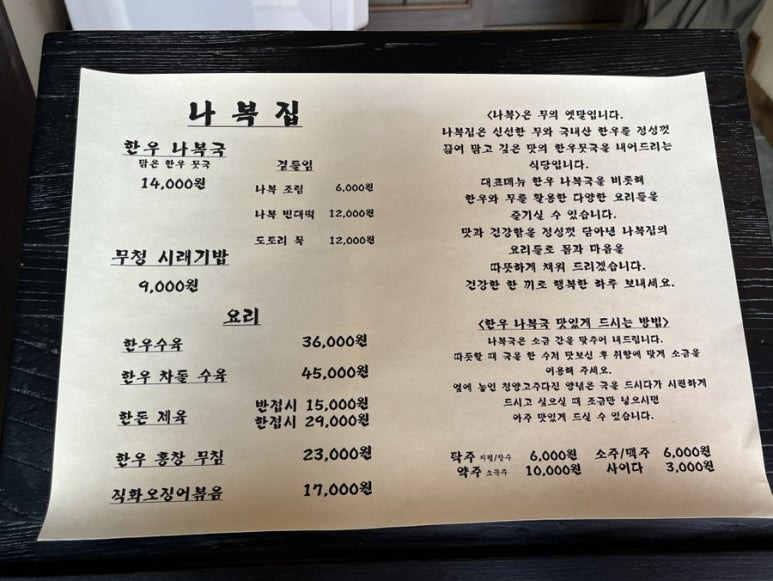 나복집
한우 나복국
맑은 한우 뭇국
14,000원
곁들임
나복 조림 6,000원
나복 빈대떡 12,000원
도토리 묵 12,000원
무청 시래기밥
9,000원
요리
한우수육 36,000원
한우 차돌 수육 45,000원
한돈 제육 반접시 15,000원
한접시 29,000원
한우 홍창 무침 23,000원
직화오징어볶음 17,000원
<나복>은 무의 옛말입니다.
나복집은 신선한 무와 국내산 한우를 정성껏
끓여 맑고 깊은 맛의 한우뭇국을 내어드리는
식당입니다.
대표메뉴 한우 나복국을 비롯해
한우와 무를 활용한 다양한 요리들을
즐기실 수 있습니다.
맛과 건강함을 정성껏 담아낸 나복집의
요리들로 몸과 마음을
따뜻하게 채워 드리겠습니다.
건강한 한 끼로 행복한 하루 보내세요.
<한우 나복국 맛있게 드시는 방법>
나복국은 소금 간을 맞추어 내드립니다.
따듯할 때 국을 한 수저 맛보신 후 취향에 맞게 소금을
이용해 주세요.
옆에 놓인 청양고추다진 양념은 국을 드시다가 시원하게
드시고 싶으실 때 조금만 넣으시면
아주 맛있게 드실 수 있습니다.
탁주 지평/장수 6,000원 소주/맥주 6,000원
약주 소곡주 10,000원 사이다 3,000원